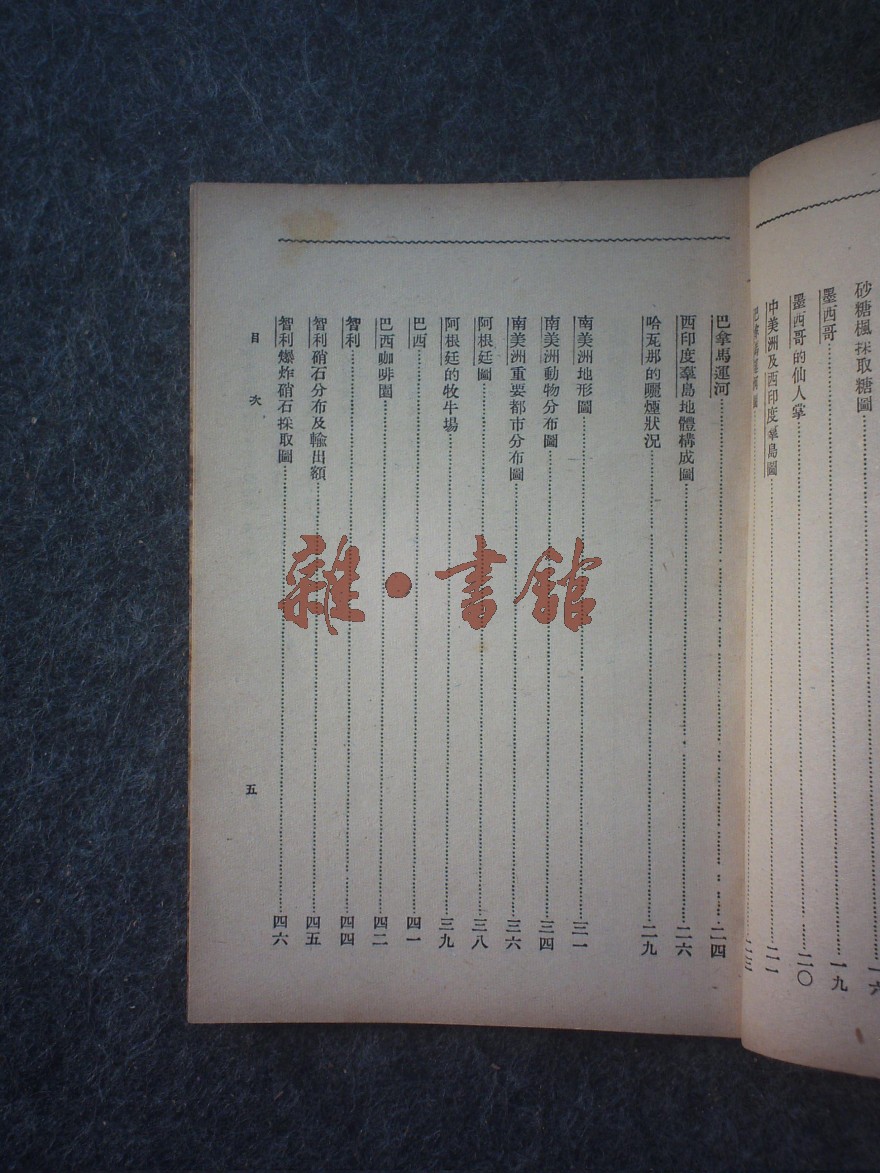 砂糖楓採取糖圖……一六
墨西哥……一九
墨西哥的仙人掌……二〇
中美洲及西印度羣島圖……二一
巴拿馬運河圖……二三
巴拿馬運河……二四
西印度羣島地體構成圖……二六
哈瓦那的曬煙狀況……二九
南美洲地形圖……三一
南美洲動物分布圖……三四
南美洲重要都市分布圖……三六
阿根廷圖……三八
阿根廷的牧牛場……三九
巴西……四一
巴西咖啡園……四二
智利……四四
智利硝石分布及輸出額……四五
智利爆炸硝石採取圖……四六
目次
五
雜·書館